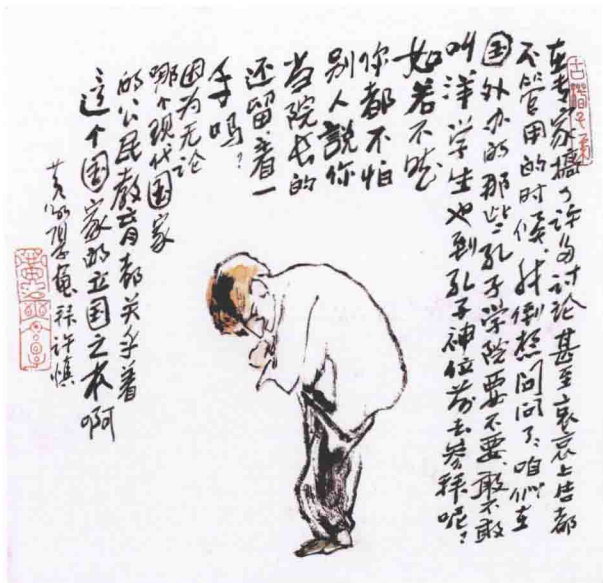 在老家搞了许多讨论甚至哀哀上告都
不管用的时候，我倒想问问了：咱们在
国外办的那些孔子学院要不要、敢不敢
叫洋学生也到孔子神位前去参拜呢？
如若不然
你都不怕
别人说你
当院长的
还留着一
手吗？
因为无论
哪个现代国家
的公民教育都关乎着
这个国家的立国之本啊